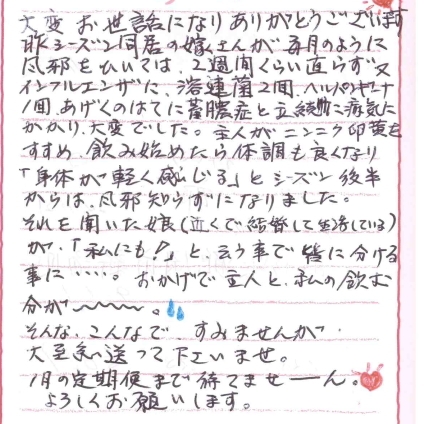 大変お世話になりありがとうございます
昨シーズン同居の嫁さんが毎月のように
風邪をひいては、2週間くらい直らず又
インフルエンザに、溶連菌2回、ヘルパンギーナ
1回、あげくのはてに蓄膿症と立続に病気に
かかり、大変でした。主人がニンニク卵黄を
すすめ、飲み始めたら体調も良くなり
「身体が軽く感じる」とシーズン後半
からは、風邪知らずになりました。
それを聞いた娘(近くで結婚して生活している)
が、「私にも!」と云う事で皆に分ける
事に・・・・。おかげで主人と、私の飲む
分が〜〜〜。
そんな、こんなで、すみませんが、
大至急送って下さいませ。
1月の定期便まで待てませーーん。
よろしくお願いします。